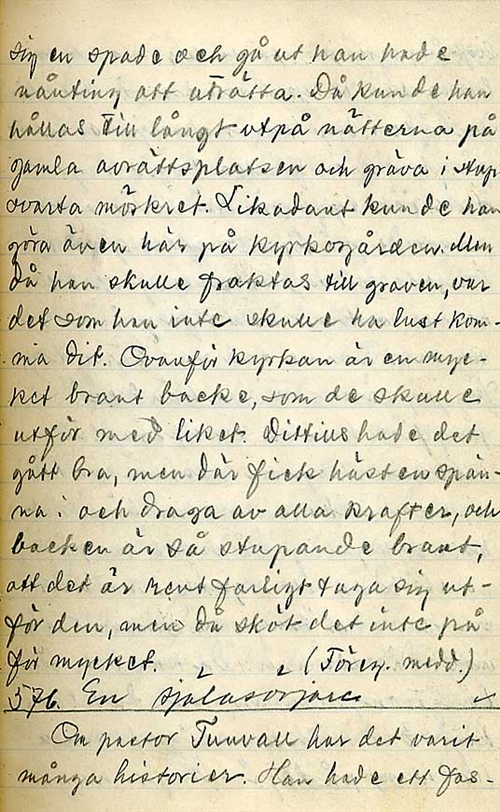 sig en spade och gå ut han hade
nånting att uträtta. Då kunde han
hållas till långt utpå nätterna på
gamla avrättsplatsen och gräva i stup
svarta mörkret. Likadant kunde han
göra även här på kyrkogården. Men
då han skulle fraktas till graven, var
det som han inte skulle ha lust kom-
ma dit. Ovanför kyrkan är en myc-
ket brant backe, som de skulle
utför med liket. Dittills hade det
gått bra, men där fick hästen spän-
na i och draga av alla krafter, och
backen är så stupande brant,
att det är rent farligt taga sig ut-
för den, men då sköt det inte på
för mycket. (Föreg. medd.)
576. En själasörjare
Om pastor Tunvall har det varit
många historier. Han hade ett fas-